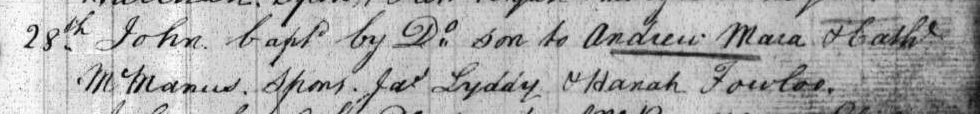 28th John. bapd by Do son to Andrew Mara & Cathe
McManus. Spons. Jas Lyddy & Hanah Fowloo.